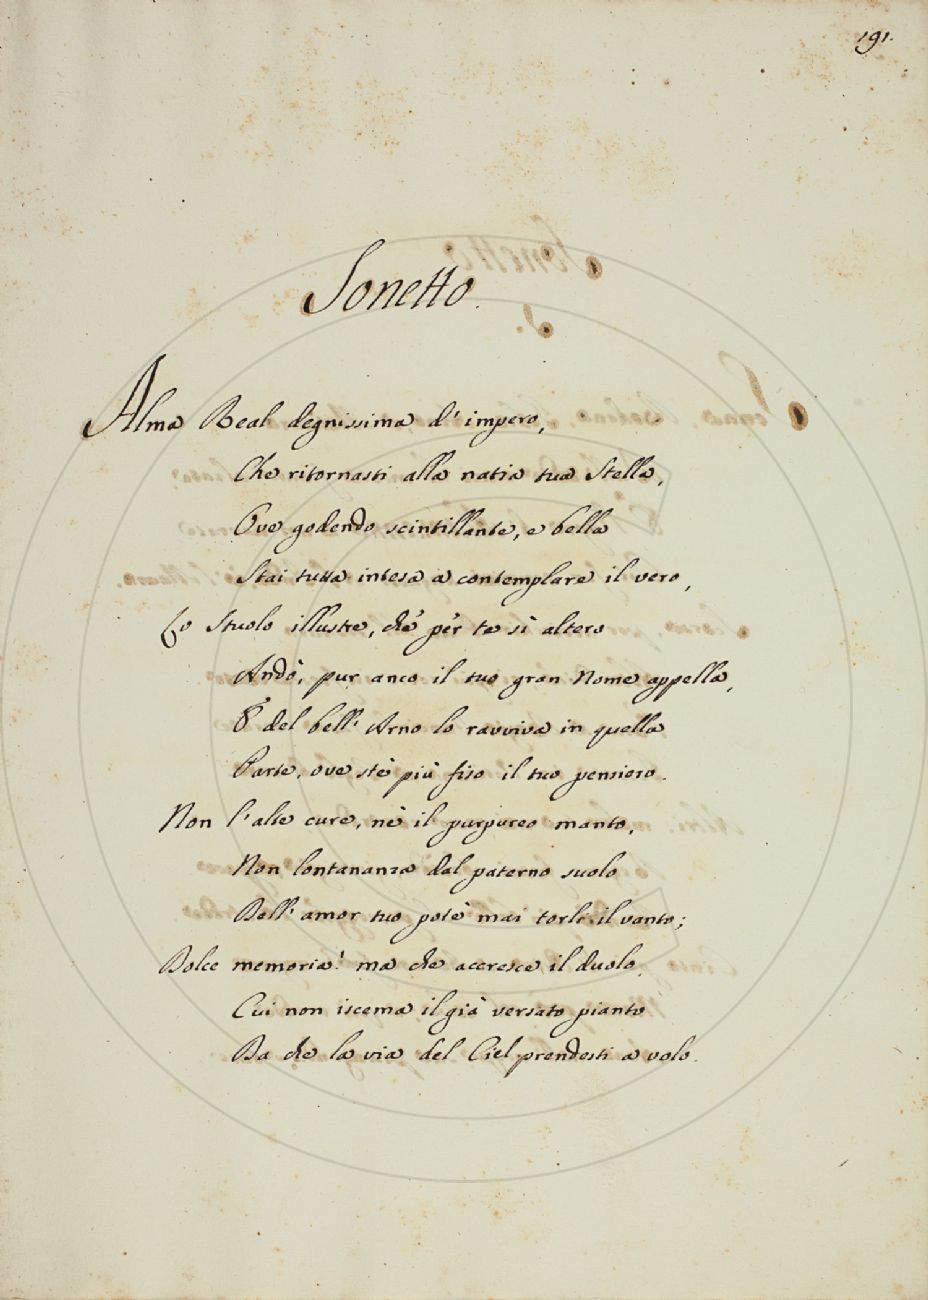 191.
Sonetto.
Alma Real degnissima d' impero,
Che ritornasti alla natia tua Stella,
Ove godendo scintillante, e bella
Stai tutta intesa a contemplare il vero,
Lo Stuolo illustre, chè per te sì altero
Andò, pur anco il tuo gran Nome appella,
E del bell' Arno lo ravviva in quella
Parte, ove stè più fiso il tuo pensiero.
Non l'alte cure, nè il purpureo manto,
Non lontananza dal paterno suolo
Dell' amor tuo potè mai torle il vanto;
Dolce memoria! ma che accresce il duolo,
Cui non iscema il già versato pianto
Da che la via del Ciel prendesti a volo.